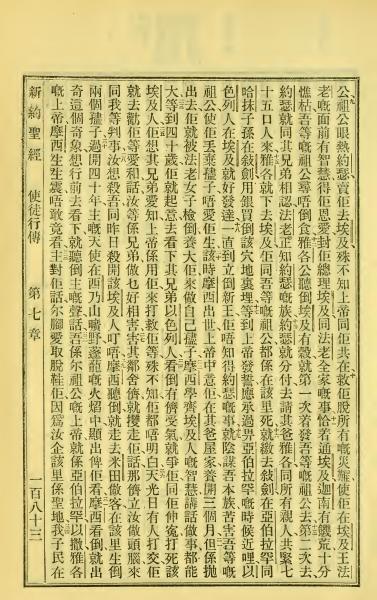 公祖公眼熱約瑟賣佢去埃及殊不知上帝同佢共在救佢脫所有嘅災難使佢在埃及王法
老嘅面前有智慧得佢恩愛封佢總理埃及同法老全家嘅事恰若通埃及迦南有饑荒十分
憔枯吾等嘅祖公尋唔倒食雅各公聽倒埃及有穀就第一次若發吾等嘅祖公去第二次去
約瑟就同其兄弟相認法老正知約瑟嘅族約瑟就分付去請其爸雅各同所有親人共緊七
十五口人來雅各就下去埃及佢同吾等嘅祖公都係在該里死就繳去敘劍在伯拉罕同
哈抹子孫在敘劍用銀買倒該穴地裏埋等到上帝發誓應承過畀亞伯拉罕嘅時候近哩以
色列人在埃及就好發達一直到立倒新王佢唔知得約瑟嘅事就陰謀吾本族苦害吾等嘅
祖公使佢丟棄孻子唔愛佢生該時摩西出世上帝中意佢在其爸屋家養開三個月但係拋
出去佢就被法老女子檢倒養大佢來做自己孻子摩西學齊埃及人嘅智慧講話做事都能
大等到四十歲佢就起意去看下其兄弟以色列人看倒有儕受氣就爭佢同佢伸寃打死該
埃及人佢想其兄弟愛知上帝係用佢來打救佢等殊不知佢都唔明白天光日有人打交佢
就去勸佢等愛和話汝等係兄弟做乜好相害害其鄰舍儕就攪走佢話那儕立汝做頭腦來
同我等判事汝想殺吾同昨日殺開該埃及人叮唔摩西聽倒就走去米田做客在該里生倒
兩個孻子過開四十年主嘅天使在西乃山曠野蓬龍嘅火焰中顯出俾佢看摩西看倒就出
奇這個奇象想行前去看下就聽倒主嘅聲話吾係尔祖公嘅上帝就係亞伯拉罕以撒雅各
嘅上帝摩西生生震唔敢竟看主對佢話尔腳愛取脫鞋佢因爲汝企該里係聖地我子民在
新約聖經　使徒行傳　第七章　一百八十三